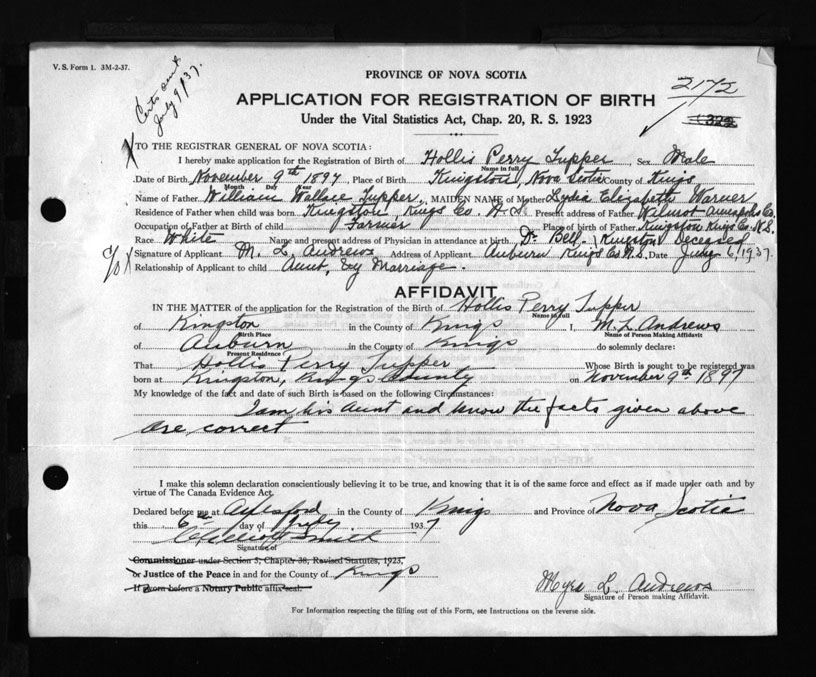 V. S. Form 1. 3M-2-37.
Certs sent July 9/37.
PROVINCE OF NOVA SCOTIA
2172
APPLICATION FOR REGISTRATION OF BIRTH
Under the Vital Statistics Act, Chap. 20, R. S. 1923
TO THE REGISTRAR GENERAL OF NOVA SCOTIA:
I hereby make application for the Registration of Birth of Hollis Perry Tupper, Sex Male
Name in full
Date of Birth November 9th 1897, Place of Birth Kingston, Nova Scotia County of Kings
Month Day Year
Name of Father William Wallace Tupper, MAIDEN NAME of Mother Lydia Elizabeth Warner
Residence of Father when child was born Kingston, Kings Co. N.S. Present address of Father Wilmot Annapolis Co.
Occupation of Father at Birth of child Farmer Place of birth of Father Kingston Kings Co. N.S.
Race White Name and present address of Physician in attendance at birth Dr. Bell, Kingston Deceased
c/o Signature of Applicant M. L. Andrews Address of Applicant Auburn Kings Co. N.S. Date July 6, 1937.
Relationship of Applicant to child Aunt, by Marriage.
AFFIDAVIT
IN THE MATTER of the application for the Registration of the Birth of Hollis Perry Tupper
Name in full
of Kingston in the County of Kings I, M. L. Andrews
Birth Place Name of Person Making Affidavit
of Auburn in the County of Kings do solemnly declare:
Present Residence
That Hollis Perry Tupper Whose Birth is sought to be registered was
born at Kingston, Kings County on November 9th 1897
My knowledge of the fact and date of such Birth is based on the following Circumstances:
I am his Aunt and know the facts given above
are correct
I make this solemn declaration conscientiously believing it to be true, and knowing that it is of the same force and effect as if made under oath and by
virtue of The Canada Evidence Act.
Declared before me at Aylesford in the County of Kings and Province of Nova Scotia
this 6th day of July 1937
Signature of
Commissioner under Section 5, Chapter 38, Revised Statutes, 1923,
or Justice of the Peace in and for the County of Kings
If sworn before a Notary Public affix seal.
Myra L. Andrews
Signature of Person making Affidavit.
For Information respecting the filling out of this Form, see Instructions on the reverse side.